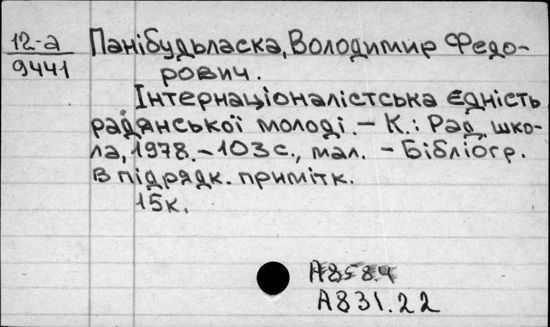 12-а
9441
Панібудьласка, Володимир Федо-
рович.
Інтернаціоналістська єдність
радянської молоді. – К.: Рад. шко-
ла, 1978. – 103 с., мал. – Бібліогр.
в підрядк. примітк.
15к.
А858.4
А831.22